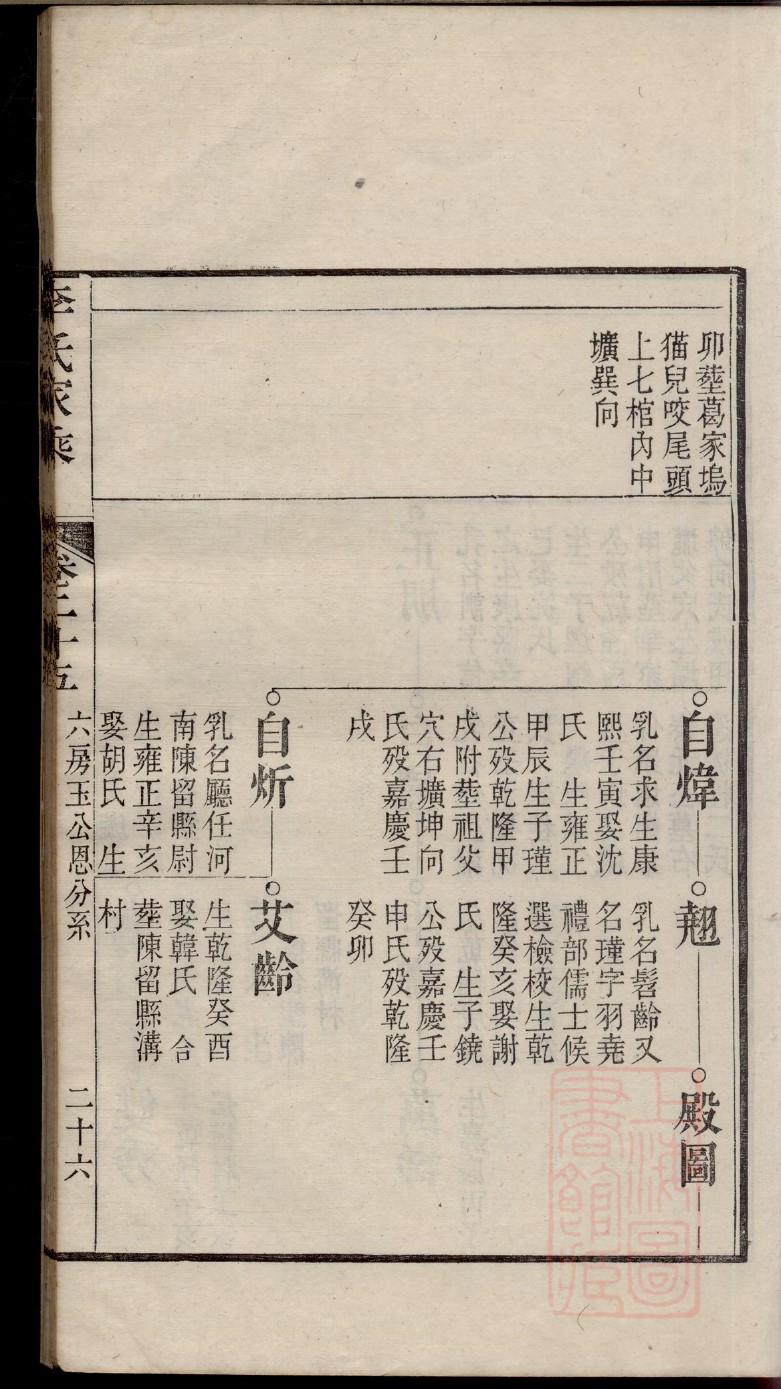 卯塟葛家塢
猫兒咬尾頭
上七棺內中
壙巽向
自煒
乳名求生康
熙壬寅娶沈
氏 生雍正
甲辰生子瑾
公殁乾隆甲
戌附塟祖父
穴右壙坤向
氏殁嘉慶壬
戌
翹
乳名髫齡又
名瑾字羽堯
禮部儒士候
選檢校生乾
隆癸亥娶謝
氏 生子鐃
公殁嘉慶壬
申氏殁乾隆
癸卯
殿圖
自炘
乳名廳任河
南陳留縣尉
生雍正辛亥
娶胡氏 生
艾齡
生乾隆癸酉
娶韓氏 合
塟陳留縣溝
村
李氏家乘
卷二十五
六房玉公恩分系
二十六
上海圖書館藏